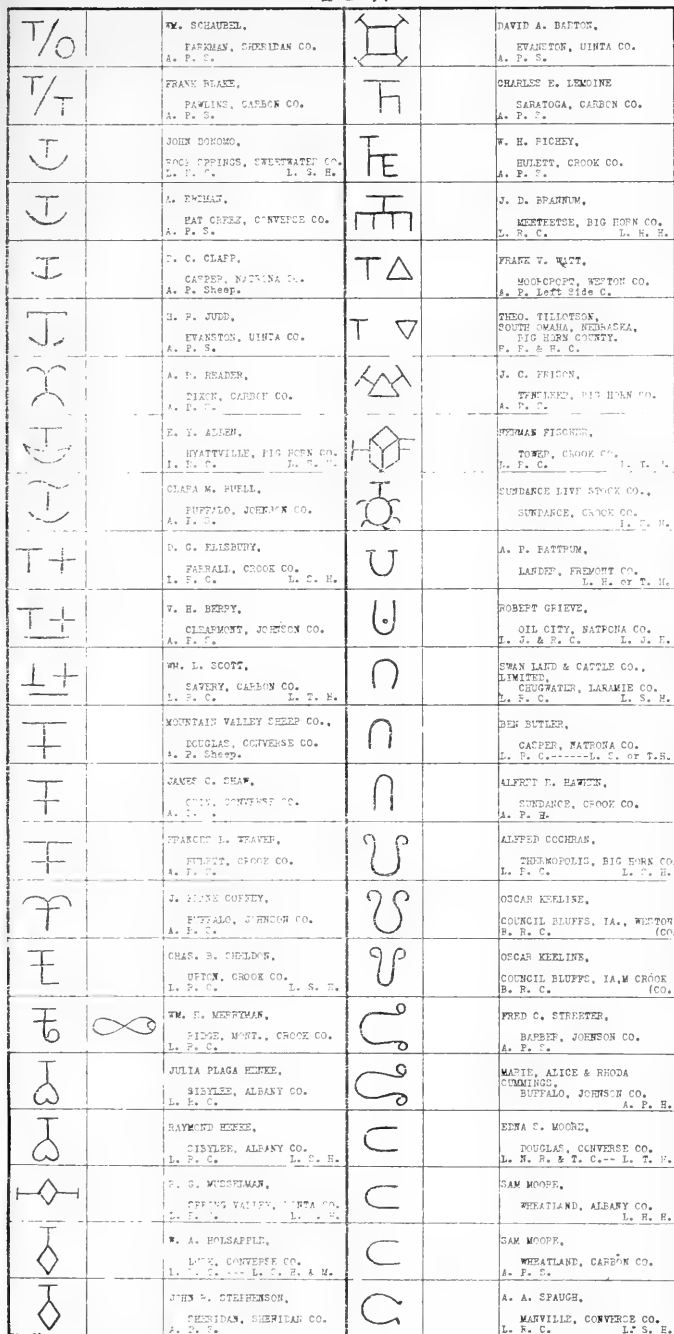 WM. SCHAUBEL,
PARKMAN, SHERIDAN CO.
A. P. S.
FRANK BLAKE,
RAWLINS, CARBON CO.
A. P. S.
JOHN
ROCK SPRINGS, SWEETWATER CO.
L. S. H.
A.
HAT CREEK, CONVERSE CO.
A. P. S.
C. CLAPP,
CASPER, NATRONA CO.
A. P. Sheep.
H. P. JUDD,
EVANSTON, UINTA CO.
A. P. S.
A. READER,
DIXON, CARBON CO.
A. P. S.
E. Y. ALLEN,
HYATTVILLE, BIG HORN CO.
CLARA M. BUELL,
BUFFALO, JOHNSON CO.
A. P. S.
D. C. ELLSBURY,
FARRALL, CROOK CO.
L. R. C. L. S. H.
V. H. BERRY,
CLEARMONT, JOHNSON CO.
A. P. S.
WM. L. SCOTT,
SAVERY, CARBON CO.
L. R. C. L. T. H.
MOUNTAIN VALLEY SHEEP CO.,
DOUGLAS, CONVERSE CO.
A. P. Sheep.
JAMES C. SHAW,
CONVERSE CO.
FRANCES L. WEAVER,
HULETT, CROOK CO.
A. P. S.
J. COFFEY,
BUFFALO, JOHNSON CO.
A. P. S.
CHAS. B. SHELDON,
UPTON, CROOK CO.
L. R. C. L. S. H.
WM. H. MERRYMAN,
RIDGE, MONT., CROOK CO.
L. R. C.
JULIA PLAGA HENKE,
SIBYLEE, ALBANY CO.
L. R. C.
RAYMOND HENKE,
SIBYLEE, ALBANY CO.
L. R. C. L. S. H.
G. MUSSELMAN,
SPRING VALLEY, UINTA CO.
W. A. HOLSAPPLE,
CONVERSE CO.
JOHN STEPHENSON,
SHERIDAN, SHERIDAN CO.
A. P. S.
DAVID A. BARTON,
EVANSTON, UINTA CO.
A. P. S.
CHARLES E. LEMOINE
SARATOGA, CARBON CO.
A. P. S.
W. H. RICHEY,
HULETT, CROOK CO.
A. P. S.
J. D. BRANNUM,
MEETEETSE, BIG HORN CO.
L. R. C. L. H. H.
FRANK V. WATT,
MOORCROFT, WESTON CO.
A. P. Left Side C.
THEO. TILLOTSON,
SOUTH OMAHA, NEBRASKA,
BIG HORN COUNTY.
J. C. FRISON,
TENSLEEP, BIG HORN CO.
A. P. S.
HERMAN FISCHER,
TOWER, CROOK CO.
SUNDANCE LIVE STOCK CO.,
SUNDANCE, CROOK CO.
A. P. BATTRUM,
LANDER, FREMONT CO.
L. H. or T. H.
ROBERT GRIEVE,
OIL CITY, NATRONA CO.
L. J. & R. C. L. J. H.
SWAN LAND & CATTLE CO.,
LIMITED,
CHUGWATER, LARAMIE CO.
L. R. C. L. S. H.
BEN BUTLER,
CASPER, NATRONA CO.
L. R. C.-----L. S. or T.H.
ALFRED
SUNDANCE, CROOK CO.
A. P. H.
ALFRED COCHRAN,
THERMOPOLIS, BIG HORN CO
L. R. C. L. S. H.
OSCAR KEELINE,
COUNCIL BLUFFS, IA., WESTON
B. R. C. (CO.
OSCAR KEELINE,
COUNCIL BLUFFS, IA,M CROOK
B. R. C. (CO.
FRED C. STREETER,
BARBER, JOHNSON CO.
A. P. S.
MARIE, ALICE & RHODA
CUMMINGS,
BUFFALO, JOHNSON CO.
A. P. H.
EDNA S. MOORE,
DOUGLAS, CONVERSE CO.
L. N. R. & T. C.-- L. T. H.
SAM MOORE,
WHEATLAND, ALBANY CO.
L. R. H.
SAM MOORE,
WHEATLAND, CARBON CO.
A. P. S.
A. A. SPAUGH,
MANVILLE, CONVERSE CO.
L. R. C. L. S. H.